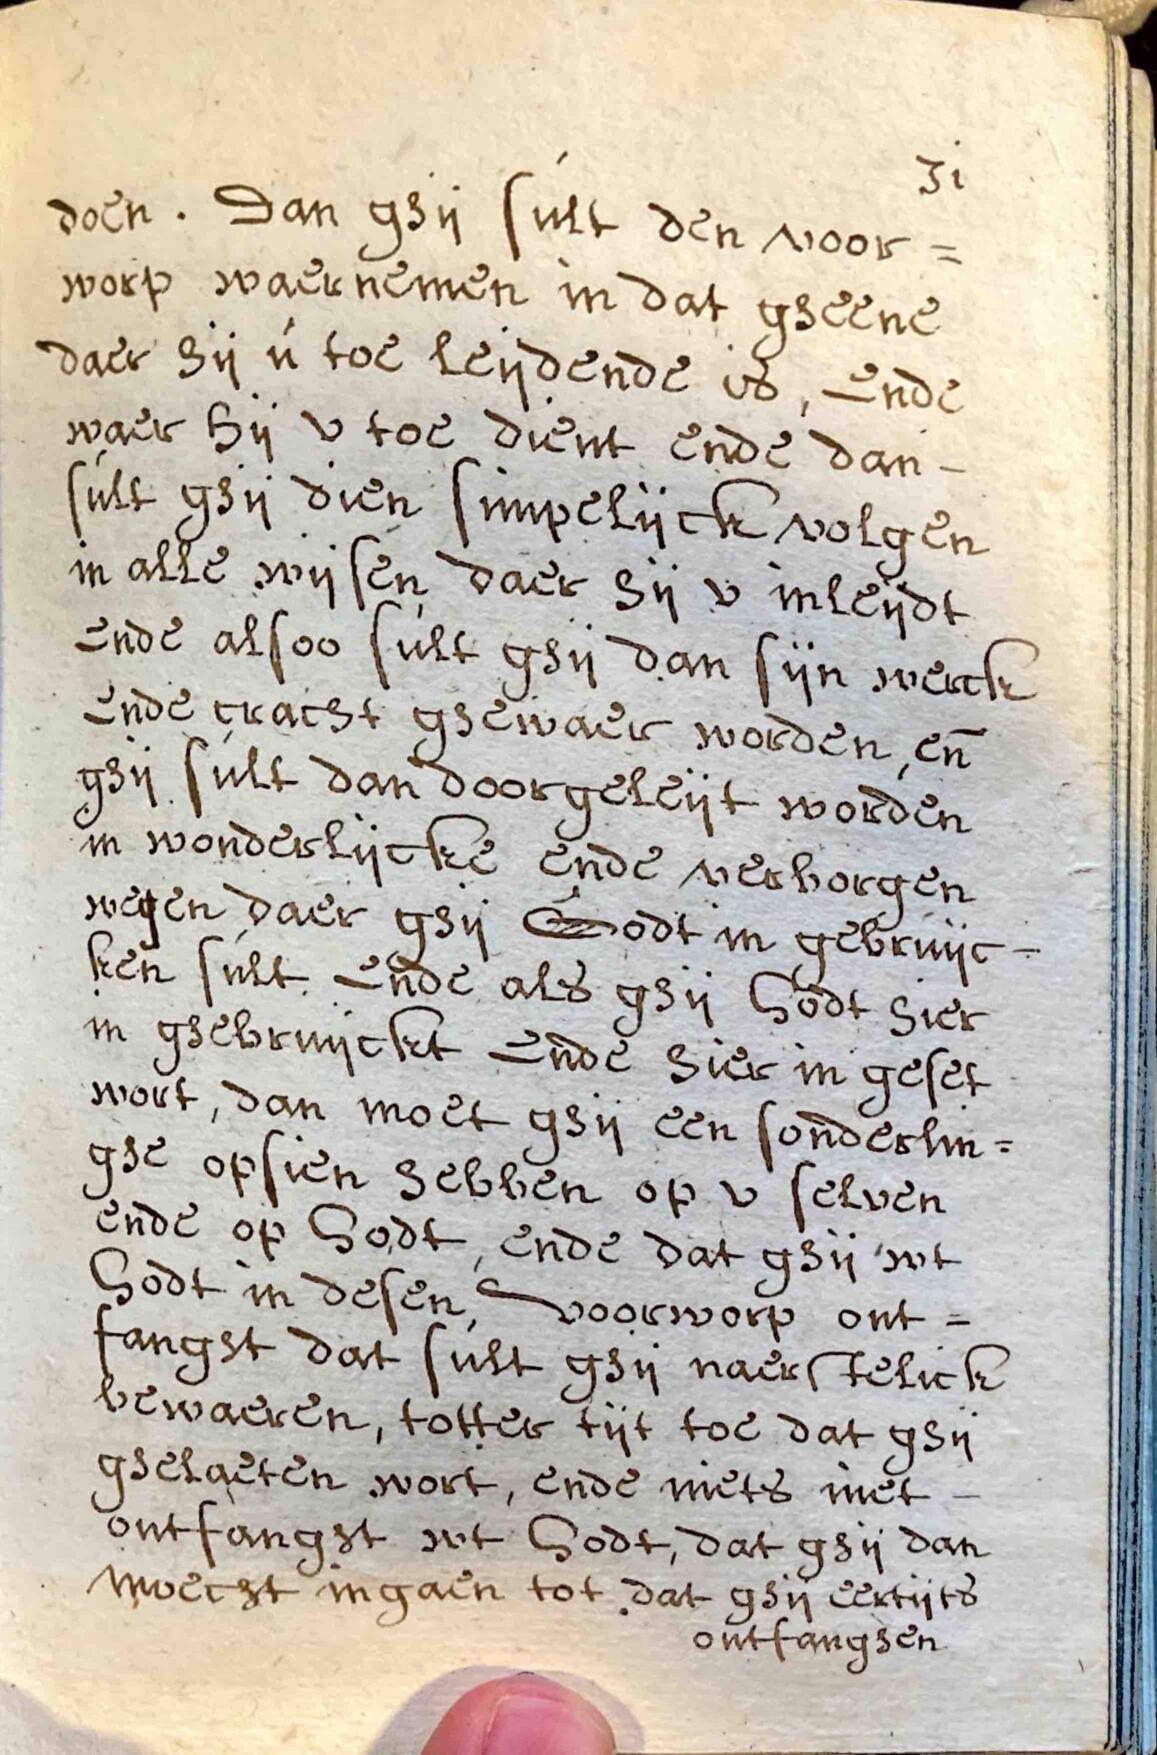 31
doen. Dan ghij sult den voor=
worp waernemen in dat gheene
daer hij ú toe leijdende is, Ende
waer hij v toe dient ende dan-
sult ghij dien simpelijck volgen
in alle wijsen daer hij v inleijdt
Ende alsoo sult ghij dan sijn werck
Ende cracht ghewaer worden, en̄
ghij sult dan doorgeleijt worden
in wonderlijcke ende verborgen
wegen daer ghij Godt in gebruijc-
ken sult. Ende als ghij Godt hier
in ghebruijckt Ende hier in geset
wort, dan moet ghij een sonderlin=
ghe opsien hebben op v selven
ende op Godt, ende dat ghij wt
Godt in desen, voorworp ont=
fanght dat sult ghij naerstelick
bewaeren, totter tijt toe dat ghij
ghelaeten wort, ende niets niet-
ontfanght wt Godt, dat ghij dan
moecht ingaen tot dat ghij eertijts
ontfanghen